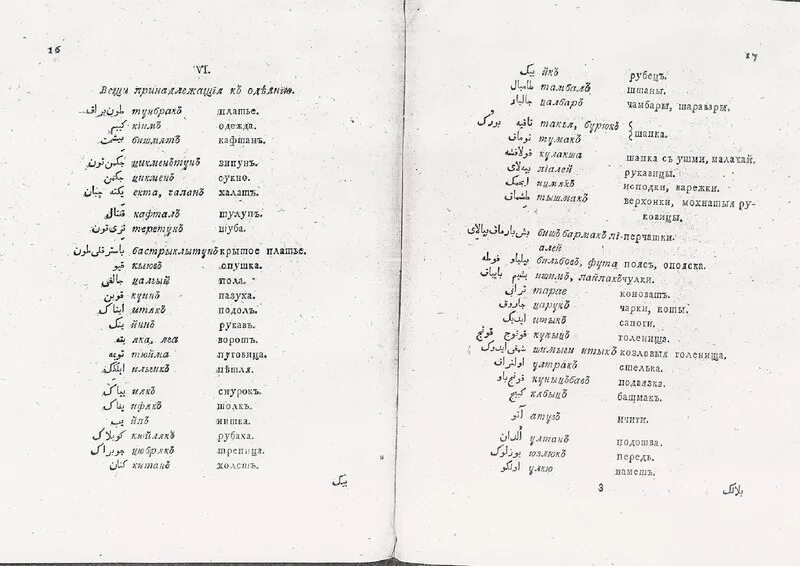 16
VI.
Вещы принадлежащія къ одѣянію.
طون براق тунбракъ платье.
كييم кіимъ одежда.
بيشمت бишмятъ кафтанъ.
چكمن تون цикментунъ зипунъ.
چكمن цикменъ сукно.
يكته چپان екта, чапанъ халатъ.
قفتال кафталъ тулупъ.
تري تون теретунъ шуба.
бастрыклытунъ крытое платье.
قيو кыювъ опушка.
چالغى цалгый пола.
قوين куинъ пазуха.
ايتاك итякъ подолъ.
ينك йинъ рукавъ.
يقه яка, яга воротъ.
تويمه тюйма пуговица.
ايلكك илыгикъ пѣтля.
илякъ снурокъ.
يفاك ифякъ шолкъ.
يب йпъ нишка.
كويلاك кюйлякъ рубаха.
чюбрякъ трепица.
كتان китанъ холстъ.
بيك
17
بيك йкъ рубецъ.
тамбалъ штаны.
چالبار цалбаръ чамбары, шаравары.
تاقيه بورك такья, бурюкъ шапка.
توماق тумакъ
قولاقشه кулакша шапка съ ушми, малахай.
بيه لاى піалей рукавицы.
ицмякъ исподки, варежки.
тышмакъ верхонки, мохнатыя ру-
ковицы.
بش بارماق بيالاى бишбармакъ пі-перчатки.
алей
بيلباو فوطه бильбовъ, фута поясъ, опояска.
ишимъ, пайпакъ чулки.
тарае коноватъ.
چاروق царукъ чарки, коты.
ايدك итыкъ сапоги.
قونج купыцъ голенища.
шимыги итыкъ козловыя голенища.
اولتراق ултракъ стелька.
قونج باو куныцъбавъ подвязка.
كبج кабыцъ башмакъ.
атузъ ичиги.
ултанъ подошва.
يوزلوك юзлюкъ передъ.
اولكو улкю наметъ.
3
بلالك